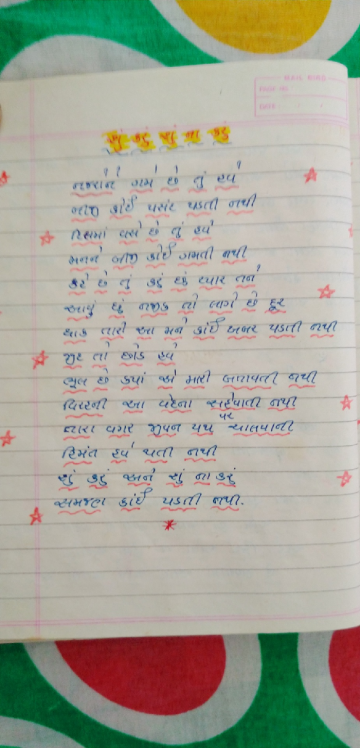 શું કહું શું ના કહું
નજરોને ગમે છે તું હવે
બીજી કોઈ પસંદ પડતી નથી
દિલમાં વસે છે તું હવે
મનને બીજી કોઈ ગમતી નથી
કરે છે તું કહું છું પ્યાર તને
આવું છું નજીક તો લાગે છે દૂર
યાદ તારી આ મને કાંઈ ખબર પડતી નથી
જીદ તો છોડ હવે
ભૂલ છે ક્યાં એ મારી બતાવતી નથી
વિરહની આ વેદના સહેવાતી નથી
તારા વગર જીવન પથ પર ચાલવાની
હિંમત હવે થતી નથી
શું કહું અને શું ના કહું
સમજણ કાંઈ પડતી નથી.